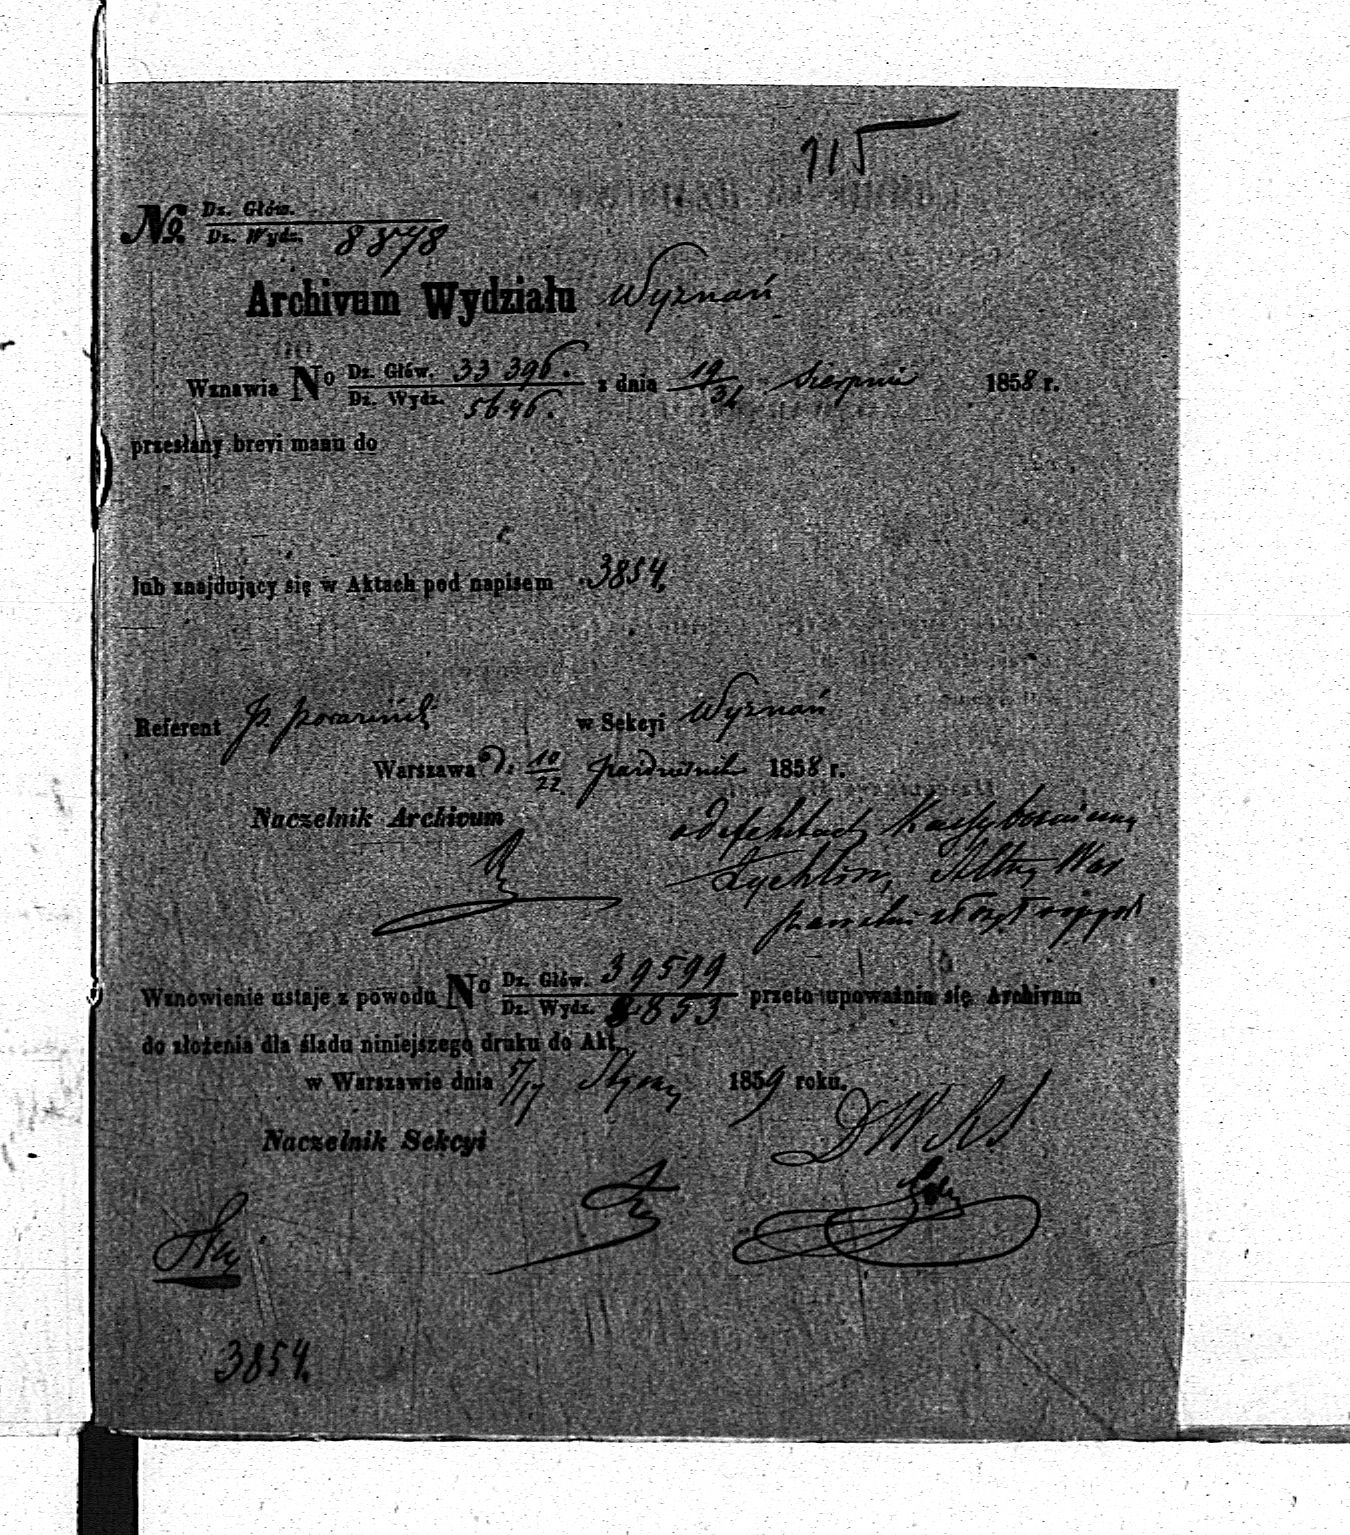 115
№ Dz. Głów.
Dz. Wydz. 8878
Archivum Wydziału Wyznań
Wznawia No Dz. Głów. 33396. z dnia 19/31 Sierpnia 1858 r.
Dz. Wydz. 5646.
przesłany brevi manu do
lub znajdujący się w Aktach pod napisem 3854.
Referent P. w Sekcyi Wyznań
Warszawa d. 10/22 Października 1858 r.
Naczelnik Archivum
o defektach
Żychlin,
Wznowienie ustaje z powodu No Dz. Głów. 39599 przeto upoważnia się Archivum
Dz. Wydz. 8853
do złożenia dla śladu niniejszego druku do Akt
w Warszawie dnia 5/17 Stycz 1859 roku.
Naczelnik Sekcyi
3854.